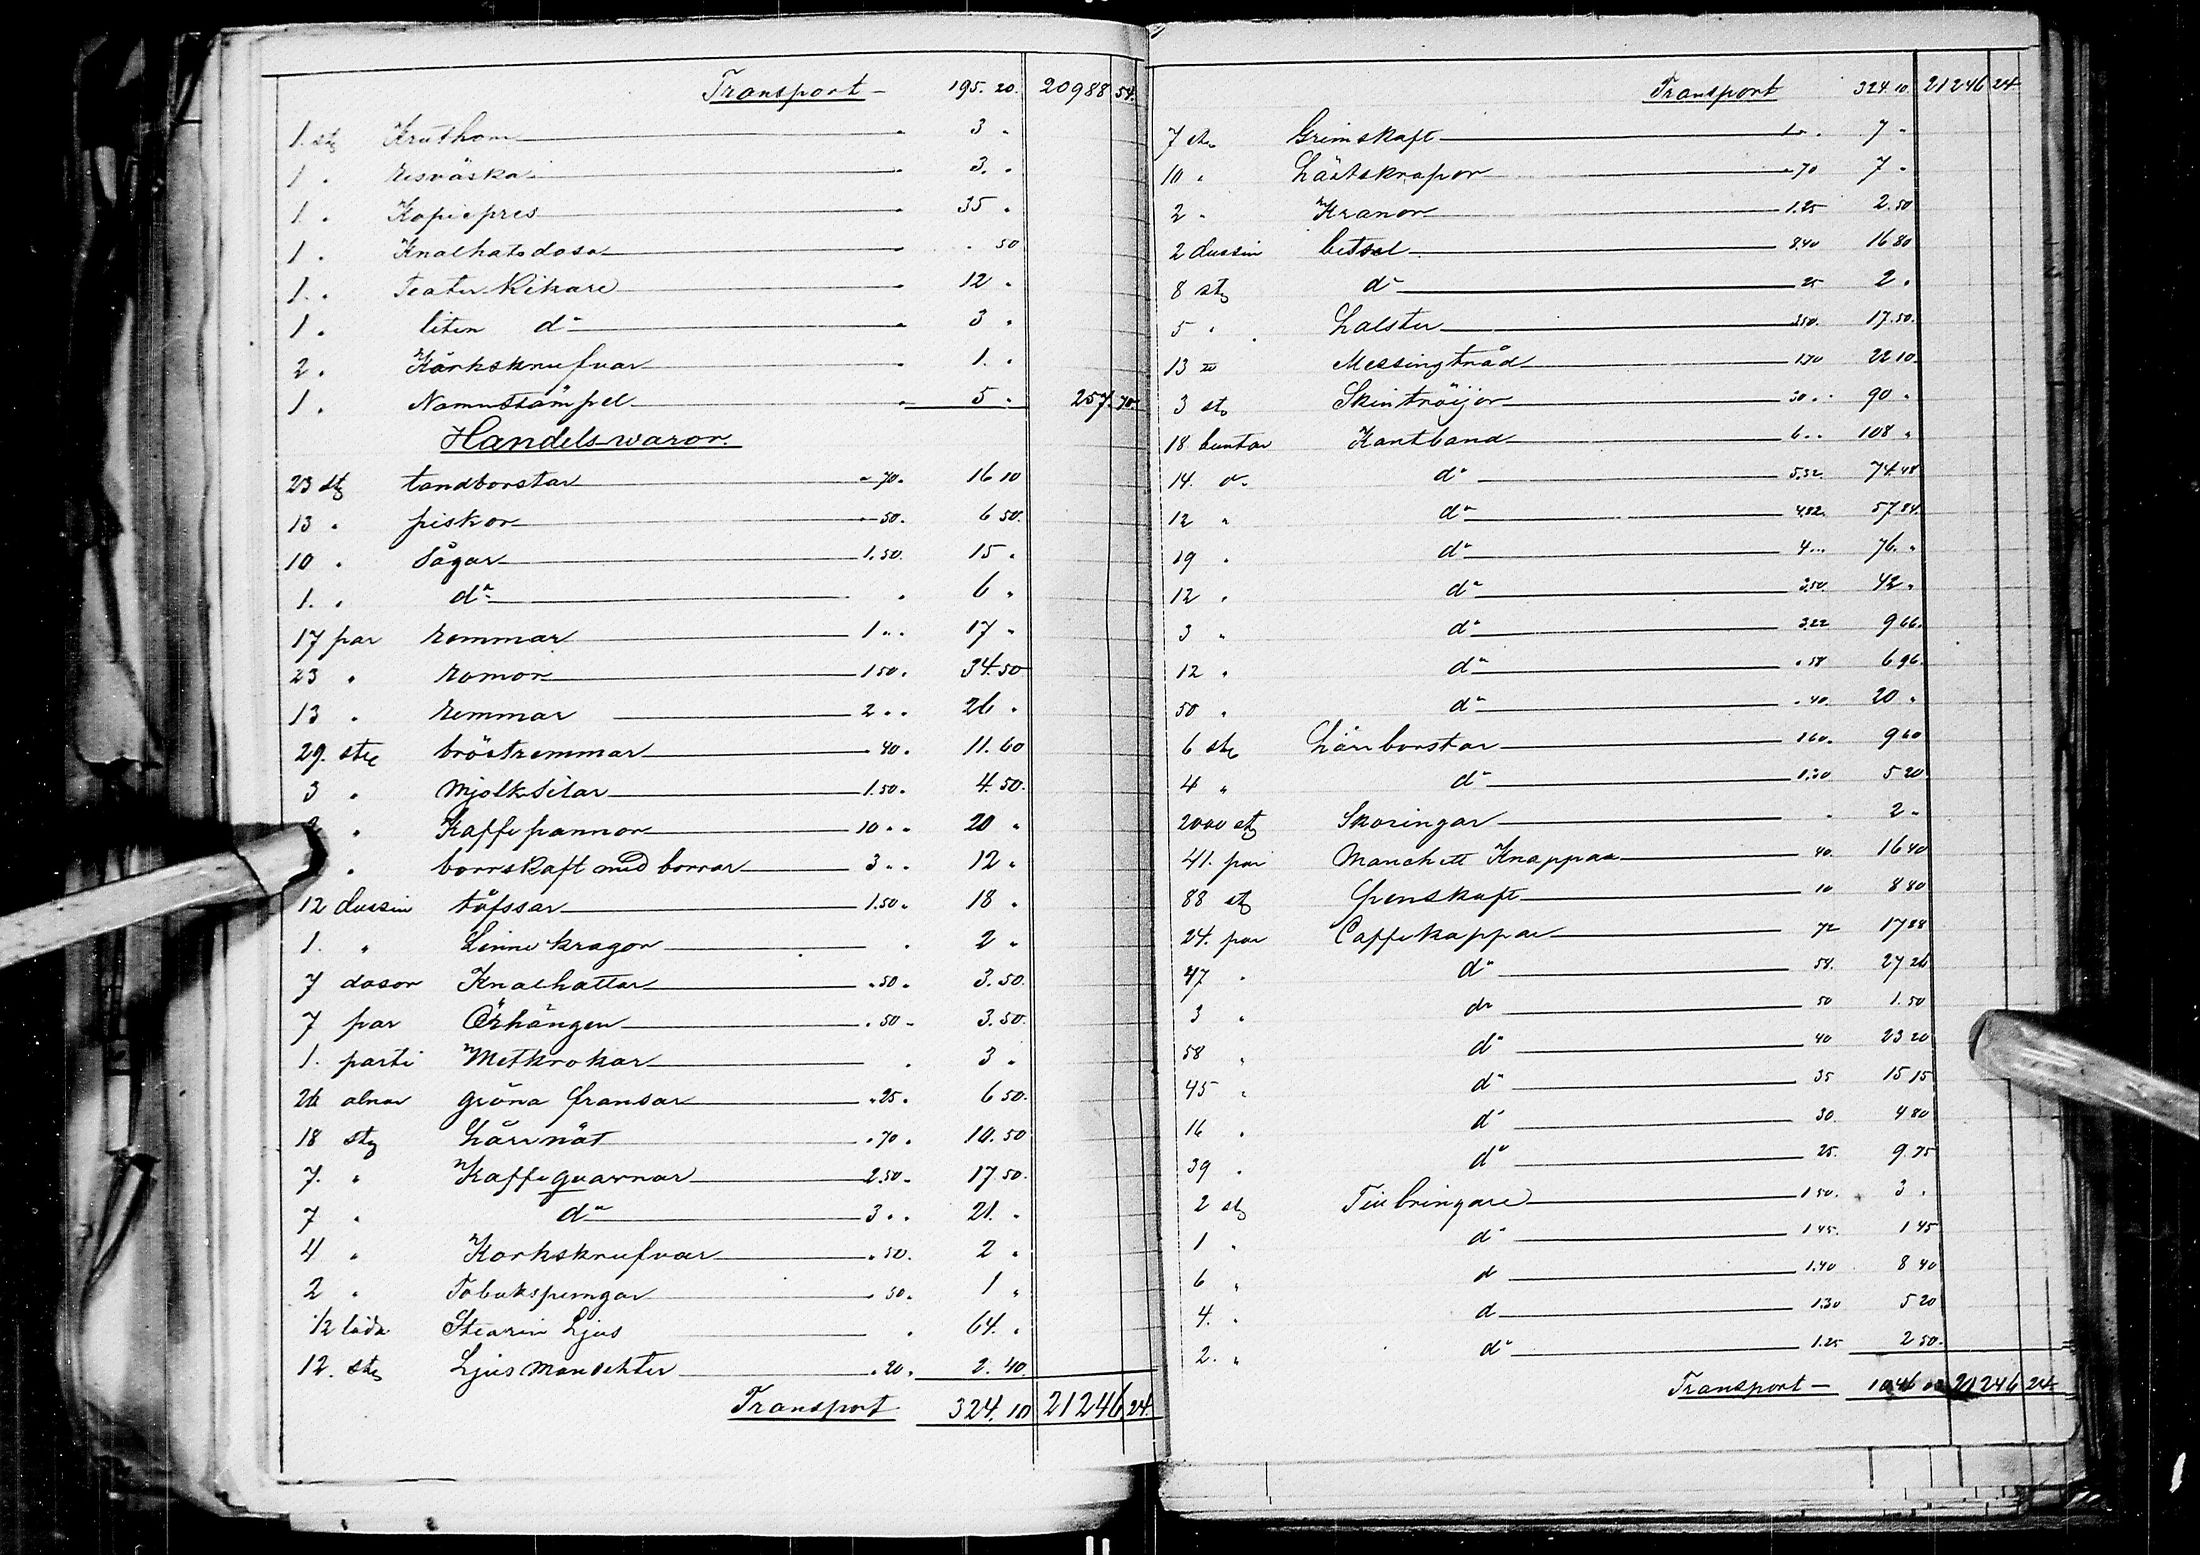 Transport - 195. 20. 20988 54.
1. stg Kruthorn - 3 "
1 " resväska - 3. "
1 " Kopiepres - 35 "
1 " Knalhatsdosa - " 50
1 " Teater Kikare - 12 "
1 " liten do - 3 "
2 " Kårkskrufvar - 1. "
1 " Namnstämpel - 5 " 257. 70
Handelswaror.
23 stg tandborstar " 70. 16 10
13 " piskor " 50. 6 50.
10 " Sågar 1.50. 15 "
1. " do " 6 "
17 par remmar 1 " " 17 "
23 " romor 1 50. 34.50
13 " remmar 2 " " 26 "
29. stg bröstremmar " 40. 11.60
3 " Mjolksilar 1.50. 4.50.
" Kaffepannor 10 " " 20 "
" borrskaft med borrar 3 " " 12 "
12 dussin tåfssar 1.50. 18 "
1. " Linne kragor " 2 "
7 dosor Knalhattar " 50 " 3.50.
7 par Örhängen " 50 - 3.50.
1. parti Metkrokar " 3 "
26 alnar gröna fransar " 25. 6 50.
18 stg Hårnät " 70. 10.50
7. " Kaffeqvarnar 2.50. 17 50.
7 " do 3 " " 21. "
4 " Korkskrufvar " 50. 2 "
2 " Tobakspungar " 50. 1 "
1/2 låda Stearin Ljus " 64. "
12. stg Ljus Manschter " 20. 2. 40.
Transport 324. 10 21246 24.
Transport 324. 10. 21246 24
7 stg Grimskaft 1 " " 7 "
10 " Hästskrapor " 70 7 "
2 " Kranor 1.25 2.50
2 dussin betsel 8.40 16 80
8 stg do 25 2 "
5 " Halster 3.50. 17.50.
13 Messingtråd 1.70 22 10
3 stg Skintröijor 30 " " 90 "
18 buntar Kantband 6 " " 108 "
14. do do 5.32. 74.48
12 " do 4.82. 57 84
19 " do 4 " " 76. "
12 " do 3.50. 42 "
3 " do 3.22 9 66.
12 " do " 58 6 96.
50 " do " 40. 20 "
6 stg Hårborstar 1.60. 9 60
4 " do 1.30 5 20
2000 stg Skoringar " 2 "
41. par Manchett Knappar 40. 16 40
88 stg Penskaft 10 8 80
24. par Caffekoppar 72 17 28
47 " do 58. 27 26
3 " do 50 1. 50
58 " do 40 23 20
45 " do 35 15 15
16 " do 30. 4 80
39 " do 25. 9. 75
2 stg Tinbringare 1 50. 3 "
1 " do 1 45. 1 45
6 " d 1.40 8 40
4. " d 1.30 5 20
2. " do 1.25 2 50.
Transport - 1046 21246 24